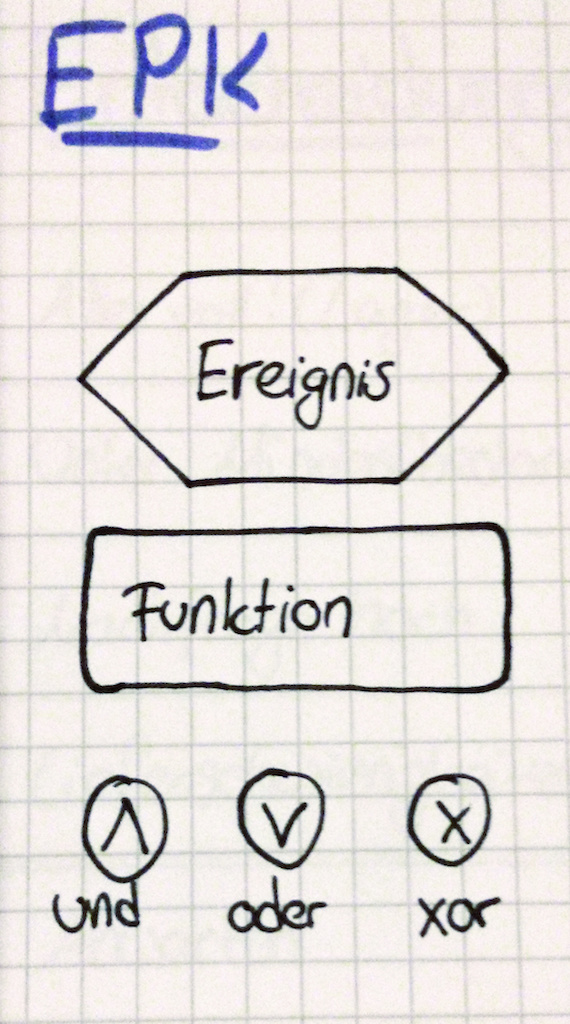 EPK
Ereignis
Funktion
∧ ∨ x
und oder xor